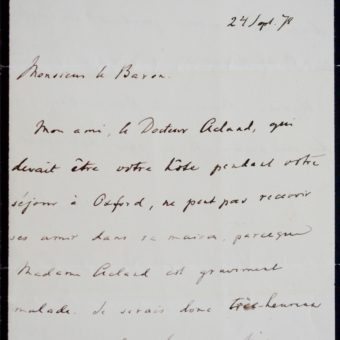 24 Sept. 78
Monsieur le Baron.
Mon ami, le Docteur Acland, qui
devait être votre hôte pendant votre
séjour à Oxford, ne peut pas recevoir
ses amis dans sa maison, parceque
Madame Acland est gravement
malade. Je serais donc très-heureux